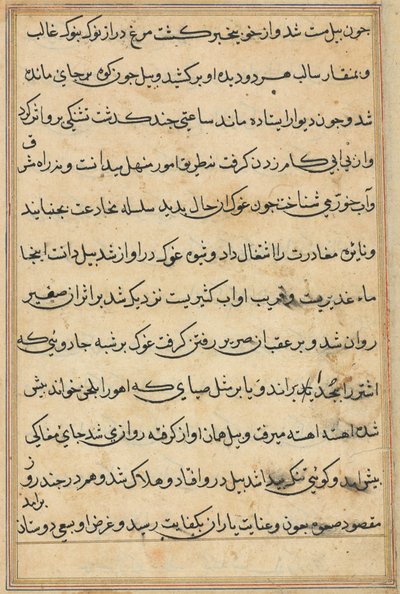 چون پیل مست شد و از خویش بیخبر گشت مرغ دراز نوک بنوک غالب
و بمنقار سالب هر دو دیده او برکشید و پیل چون کوه بر جای مانده
شد و چون دیوار ایستاده ماند ساعتی چند گذشت تشنگی برو اثر کرد
و از بی آبی کام زدن گرفت نه طریق امور منهل میدانست و نه راه
و آب خور می شناخت چون غوک از حال بدید سلسله مخادعت بجنبانید
و نایره مغادرت را اشتعال داد و شیوه غوک در آواز شد پیل دانست اینجا
ماء غدیریست و قریب اواب کثیریست نزدیک شد بر اثر آن صفیر
روان شد و بر عقب آن صریر رفتن گرفت غوک بر شبه جادوئی که
اشتر را بحدی براند و یا بر مثل صیادی که آهو را بلحن خواند پیش
شده آهسته آهسته میرفت و پیل همان آواز گرفته روان شد جای مغاکی
پیش آمد و گوئی پیل درو افتاد و هلاک شد و هم در چند روز
مقصود صعوه بعون و عنایت یاران بکفایت رسید و غرض او بسعی دوستان
برآمد